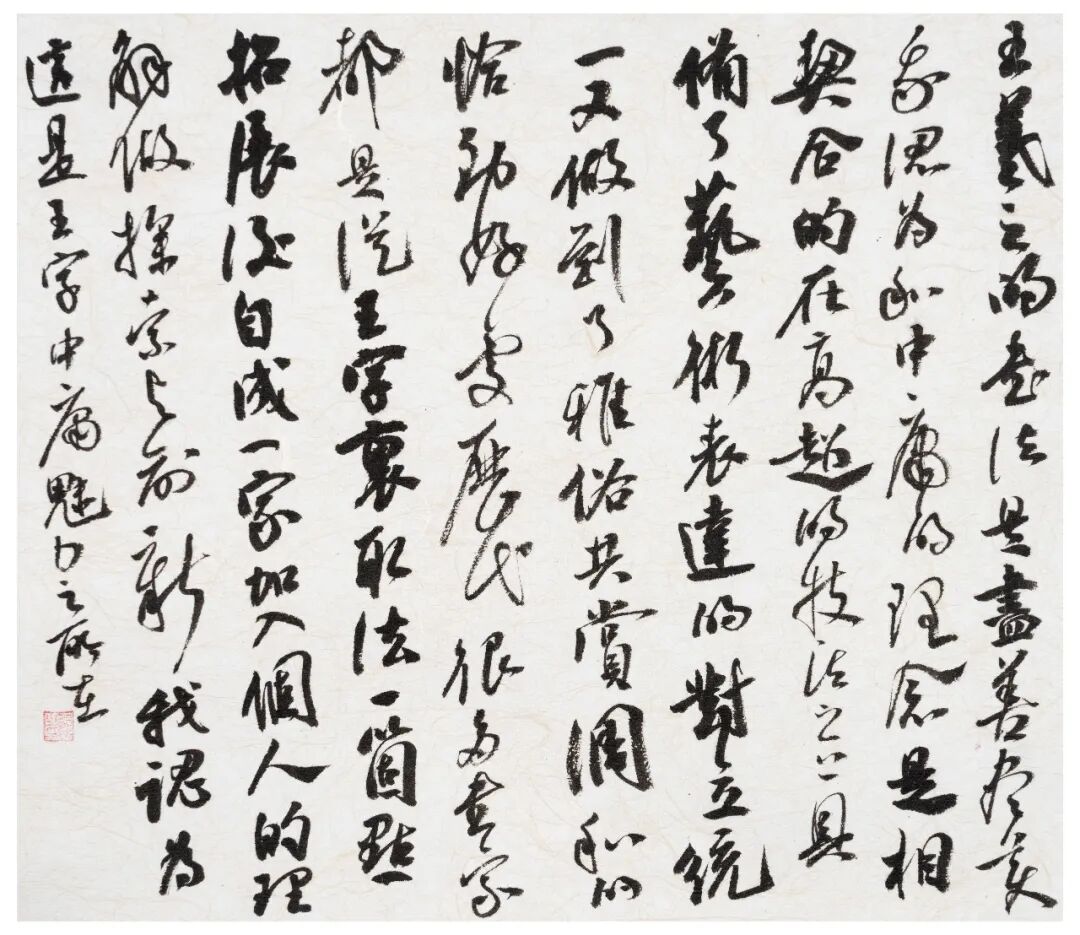 王羲之的書法是盡善盡美
我認為和中庸的理念是相
契合的在高超的技法之上具
備了藝術表達的對立統
一又做到了雅俗共賞調和的
恰到好處歷代很多書家
都是從王字裏取法一個點
拓展後自成一家加入個人的理
解做探索與創新我認為
這是王字中庸魅力之所在